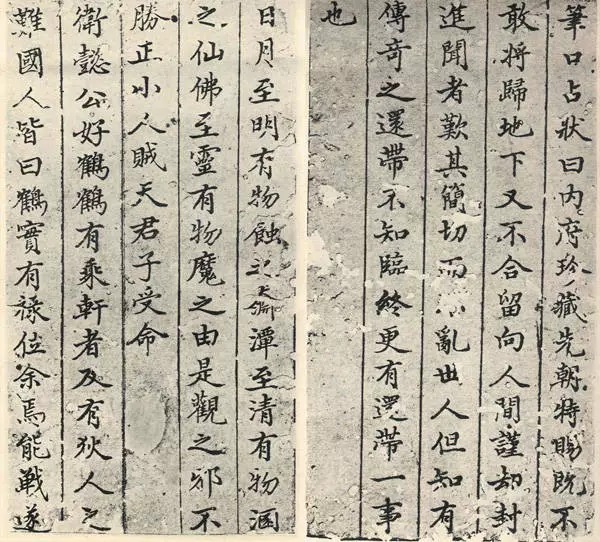 筆口占狀曰內府珍藏先朝特賜既不
敢將歸地下又不合留向人間謹却封
進聞者歎其簡切而亂世人但知有
傳奇之還帶不知臨終更有還帶一事
也
日月至明有物蝕之潭至清有物溷
之仙佛至靈有物魔之由是觀之邪不
勝正小人賊天君子受命
衛懿公好鶴鶴有乘軒者及有狄人之
難國人皆曰鶴實有祿位余焉能戰遂